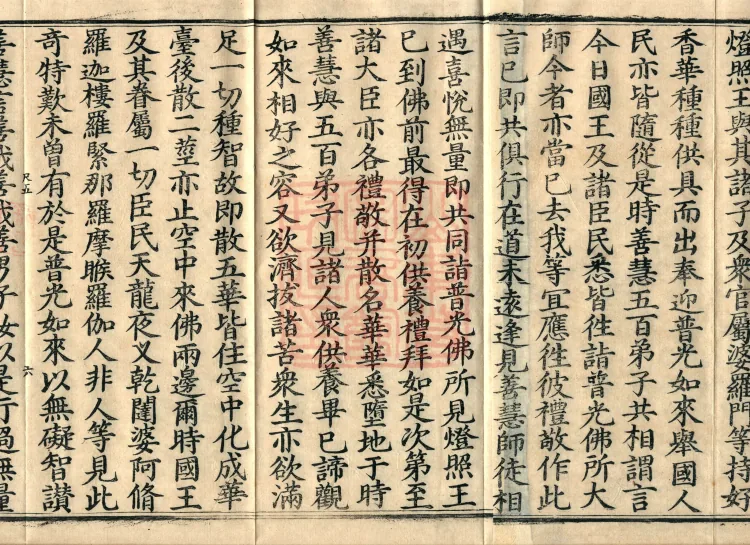 燈照王與其諸子及衆官屬婆羅門等持好
香華種種供具而出奉迎普光如來舉國人
民亦皆隨從是時善慧五百弟子共相謂言
今日國王及諸臣民悉皆徃詣普光佛所大
師今者亦當已去我等宜應徃彼禮敬作此
言已即共俱行在道未遠逢見善慧師徒相
遇喜悅無量即共同詣普光佛所見燈照王
已到佛前最得在初供養禮拜如是次第至
諸大臣亦各禮敬并散名華華悉墮地于時
善慧與五百弟子見諸人衆供養畢已諦觀
如來相好之容又欲濟拔諸苦衆生亦欲滿
足一切種智故即散五華皆住空中化成華
臺後散二莖亦止空中來佛兩邊爾時國王
及其眷屬一切臣民天龍夜叉乾闥婆阿脩
羅迦樓羅緊那羅摩睺羅伽人非人等見此
奇特歎未曾有於是普光如來以無礙智讃
六
善慧言善哉善哉善男子汝以是行過無量